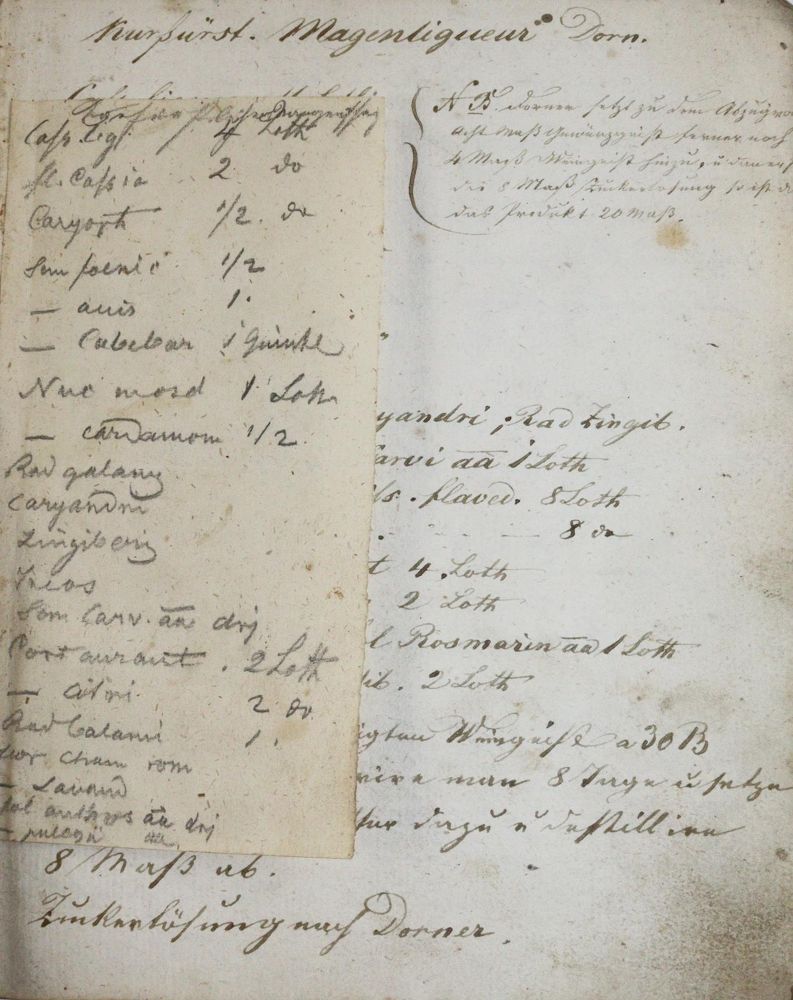 Kurfürst. Magenliqueur Dorn.
N B. Dorner setzt zu dem Abzug von
acht Maß Gewürzgeist ferner noch
4 Maß Weingeist hinzu, u dann erst
die 8 Maß Zuckerlösung so ist
das Produkt 20 Maß.
Cass. lig. 4 Loth
fl. Cassia 2 do
Caryoph 1/2 do
Sem foenic 1/2
— anis 1.
— Cubebar 1 Quintl
Nuc mosch 1 Loth
— cardamom 1/2
Rad galang
Caryandri
Zingiberis
Ireos
Sem Carv. aa drj
Cort aurant. 2 Loth
— citri 2 do
Rad Calami 1.
flor cham rom
— Lavand
fol anthos aa drj
— pulegii aa
yandri, Rad Zingib.
Carvi aa 1 Loth
flaved. 8 Loth
8 do
t 4 Loth
2 Loth
l Rosmarin aa 1 Loth
ib. 2 Loth
igten Weingeist a 30 B
vire man 8 Tage u setze
ser dazu u destillire
8 Maß ab.
Zuckerlösung nach Dorner.